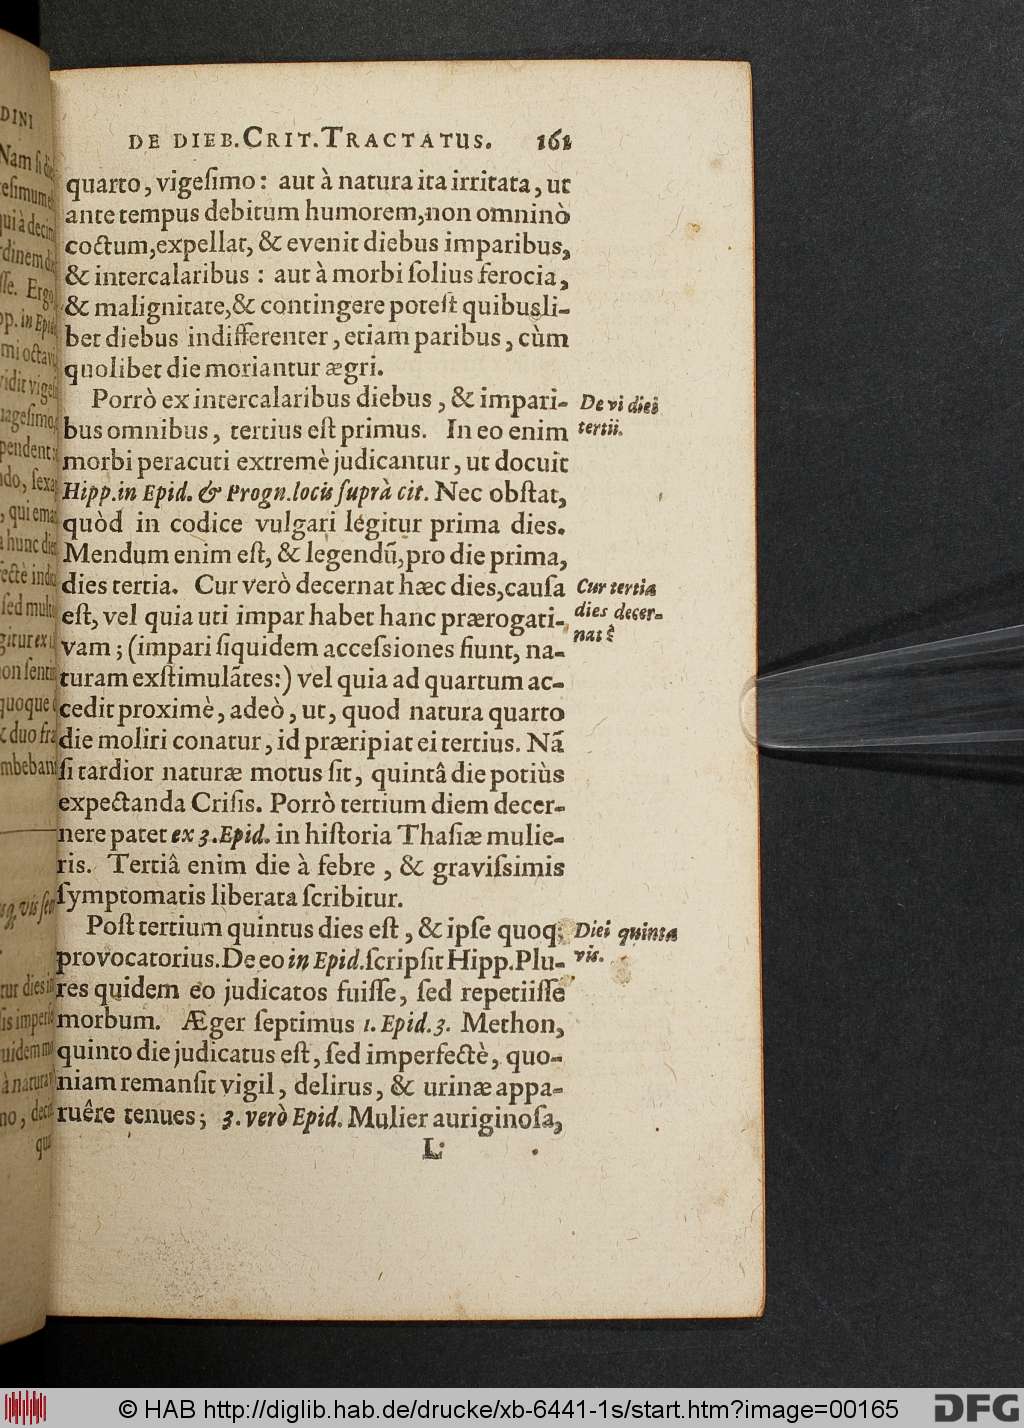 DE DIEB. CRIT. TRACTATUS. 161
quarto, vigeſimo: aut à natura ita irritata, ut
ante tempus debitum humorem, non omninò
coctum, expellat, & evenit diebus imparibus,
& intercalaribus: aut à morbi ſolius ferocia,
& malignitate, & contingere poteſt quibusli-
bet diebus indifferenter, etiam paribus, cùm
quolibet die moriantur ægri.
Porrò ex intercalaribus diebus, & impari-
De vi diei
bus omnibus, tertius eſt primus. In eo enim
tertii.
morbi peracuti extremè judicantur, ut docuit
Hipp. in Epid. & Progn. locis ſuprà cit. Nec obſtat,
quòd in codice vulgari legitur prima dies.
Mendum enim eſt, & legendũ, pro die prima,
dies tertia. Cur verò decernat hæc dies, cauſa
Cur tertia
eſt, vel quia uti impar habet hanc prærogati-
dies decer-
vam; (impari ſiquidem acceſsiones fiunt, na-
nat?
turam exſtimulãtes:) vel quia ad quartum ac-
cedit proximè, adeò, ut, quod natura quarto
die moliri conatur, id præripiat ei tertius. Nã
ſi tardior naturæ motus ſit, quintâ die potiùs
expectanda Criſis. Porrò tertium diem decer-
nere patet ex 3. Epid. in hiſtoria Thaſiæ mulie-
ris. Tertiâ enim die à febre, & graviſsimis
ſymptomatis liberata ſcribitur.
Poſt tertium quintus dies eſt, & ipſe quoq;
Diei quinta
provocatorius. De eo in Epid. ſcripſit Hipp. Plu-
vis.
res quidem eo judicatos fuiſſe, ſed repetiiſſe
morbum. Æger ſeptimus 1. Epid. 3. Methon,
quinto die judicatus eſt, ſed imperfectè, quo-
niam remanſit vigil, delirus, & urinæ appa-
ruêre tenues; 3. verò Epid. Mulier auriginoſa,
L
© HAB http://diglib.hab.de/drucke/xb-6441-1s/start.htm?image=00165
DFG